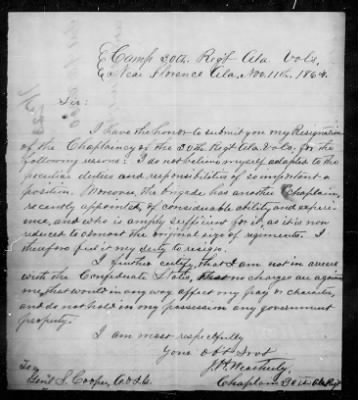 Camp 30th Reg't Ala. Vols.
Near Florence Ala. Nov. 11th 1864.
Sir:
I have the honor to submit you my Resignation
of the Chaplaincy of the 30th Reg't Ala. Vols. for the
following reasons: I do not believe myself adapted to the
peculiar duties and responsibilities of so important a
position. Moreover, the brigade has another Chaplain,
recently appointed, of considerable ability and experi-
ence, and who is amply sufficient for it, as it is now
reduced to almost the original size of regiments. I
therefore feel it my duty to resign.
I further certify, that I am not in arrears
with the Confederate States, that no charges are against
me, that would in any way affect my pay or character,
and do not hold in my possession any government
property.
I am most respectfully
Your Obt Svt
To J. H. Weatherly
Gen'l S. Cooper, A. & I. G. Chaplain 30th Ala Reg't